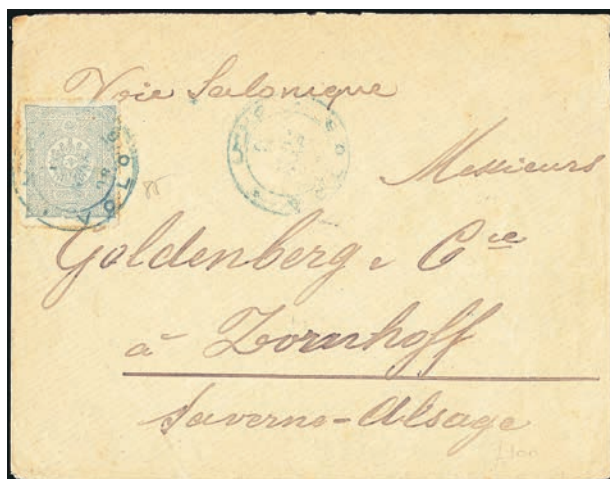 Voie Salonique
VOLO
VOLO
Messieurs
Goldenberg & Cie
à Zornhoff
Saverne-Alsage